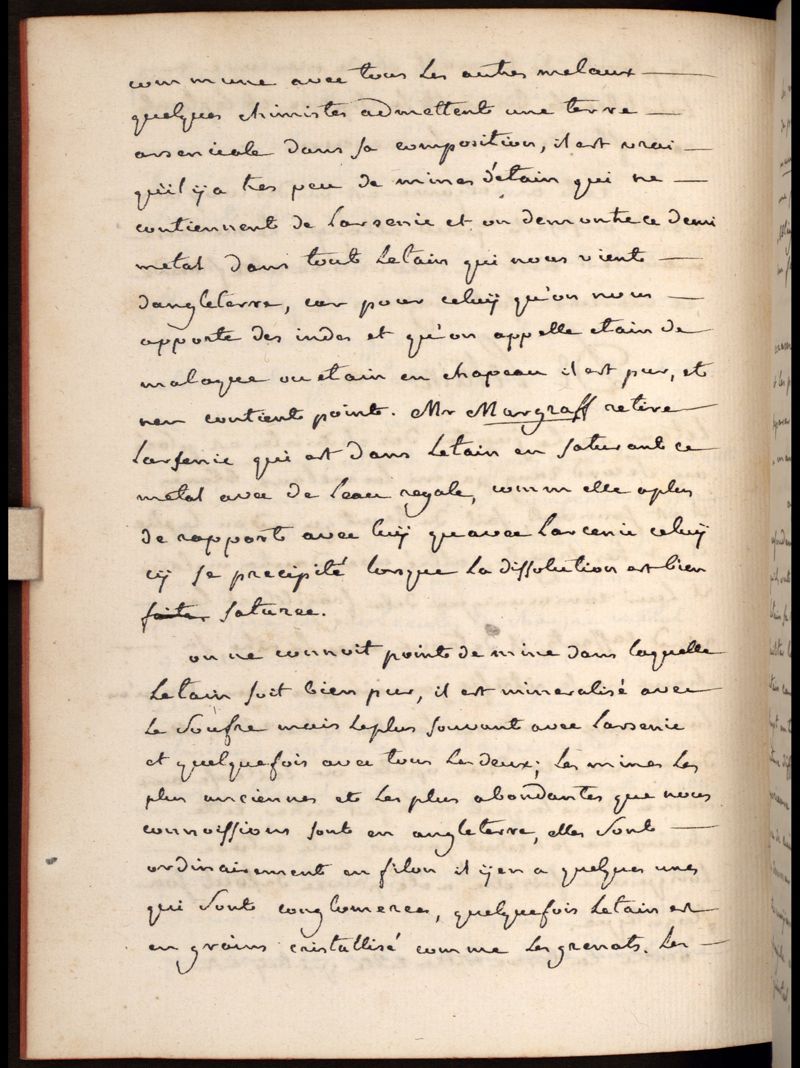 commune avec tous les autres metaux —
quelques chimistes admettent une terre —
arsenicale dans sa composition, il est vrai —
qu'il y a tres peu de mines d'étain qui ne —
contiennent de larsenic et on demontre ce demi
metal dans tout letain qui nous vient —
dangleterre, car pour celuÿ qu'on nous —
apporte des indes et qu'on appelle etain de
malaque ou etain en chapeau il est pur, et
nen contient point. Mr Margraff retire
Larsenic qui est dans letain en saturant ce
metal avec de leau regale, comm elle a plus
de rapport avec luÿ quavec Larcenic celuÿ
cy se precipité lorsque la dissolution est bien
faite saturee.
on ne connoit point de mine dans laquelle
Letain soit bien pur, il est mineralisé avec
le soufre mais leplus souvant avec larsenic
et quelquefois avec tous les deux; les mines les
plus anciennes et les plus abondantes que nous
connoissions sont en angleterre, elles sont —
ordinairement en filon il ÿen a quelques unes
qui sont conglomerees, quelquefois letain est
en grains cristallisé comme les grenats. Les —